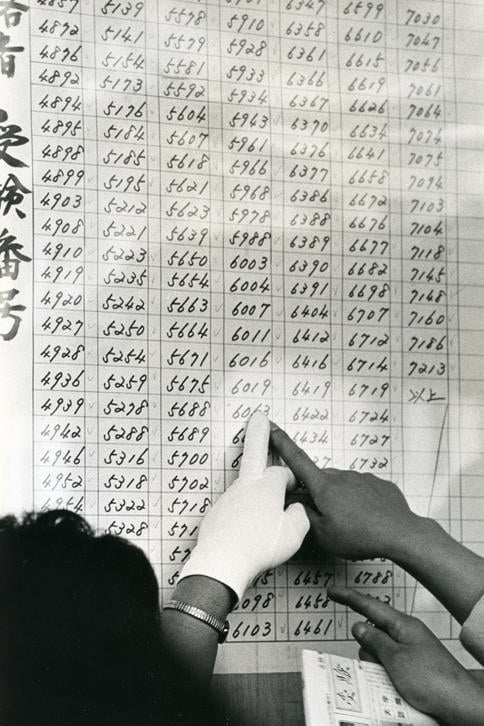 者 受検番号
4872
4876
4892
4894
4895
4898
4899
4903
4908
4910
4919
4920
4927
4928
4936
4939
4942
4946
4952
4954
5139
5141
5154
5173
5176
5184
5185
5195
5212
5221
5223
5235
5242
5250
5254
5259
5278
5288
5316
5318
5322
5328
5578
5579
5581
5592
5604
5607
5618
5621
5623
5639
5650
5654
5663
5664
5671
5675
5688
5689
5700
5702
5718
5910
5928
5933
5934
5943
5961
5966
5968
5978
5988
6003
6004
6007
6011
6016
6019
6098
6103
6347
6358
6361
6366
6367
6370
6376
6377
6386
6388
6389
6390
6391
6404
6412
6416
6419
6422
6434
6457
6458
6461
6599
6610
6615
6619
6626
6634
6641
6658
6672
6676
6677
6682
6698
6707
6712
6714
6719
6724
6727
6732
6788
7030
7047
7056
7061
7064
7074
7075
7094
7103
7104
7118
7145
7148
7160
7186
7213
以上